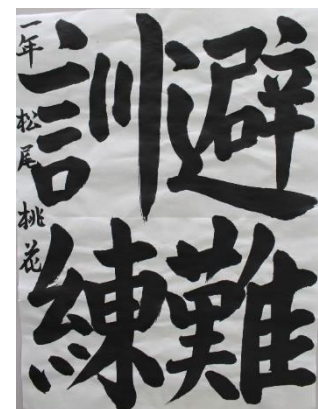 避難
訓練
一年 松尾 桃花